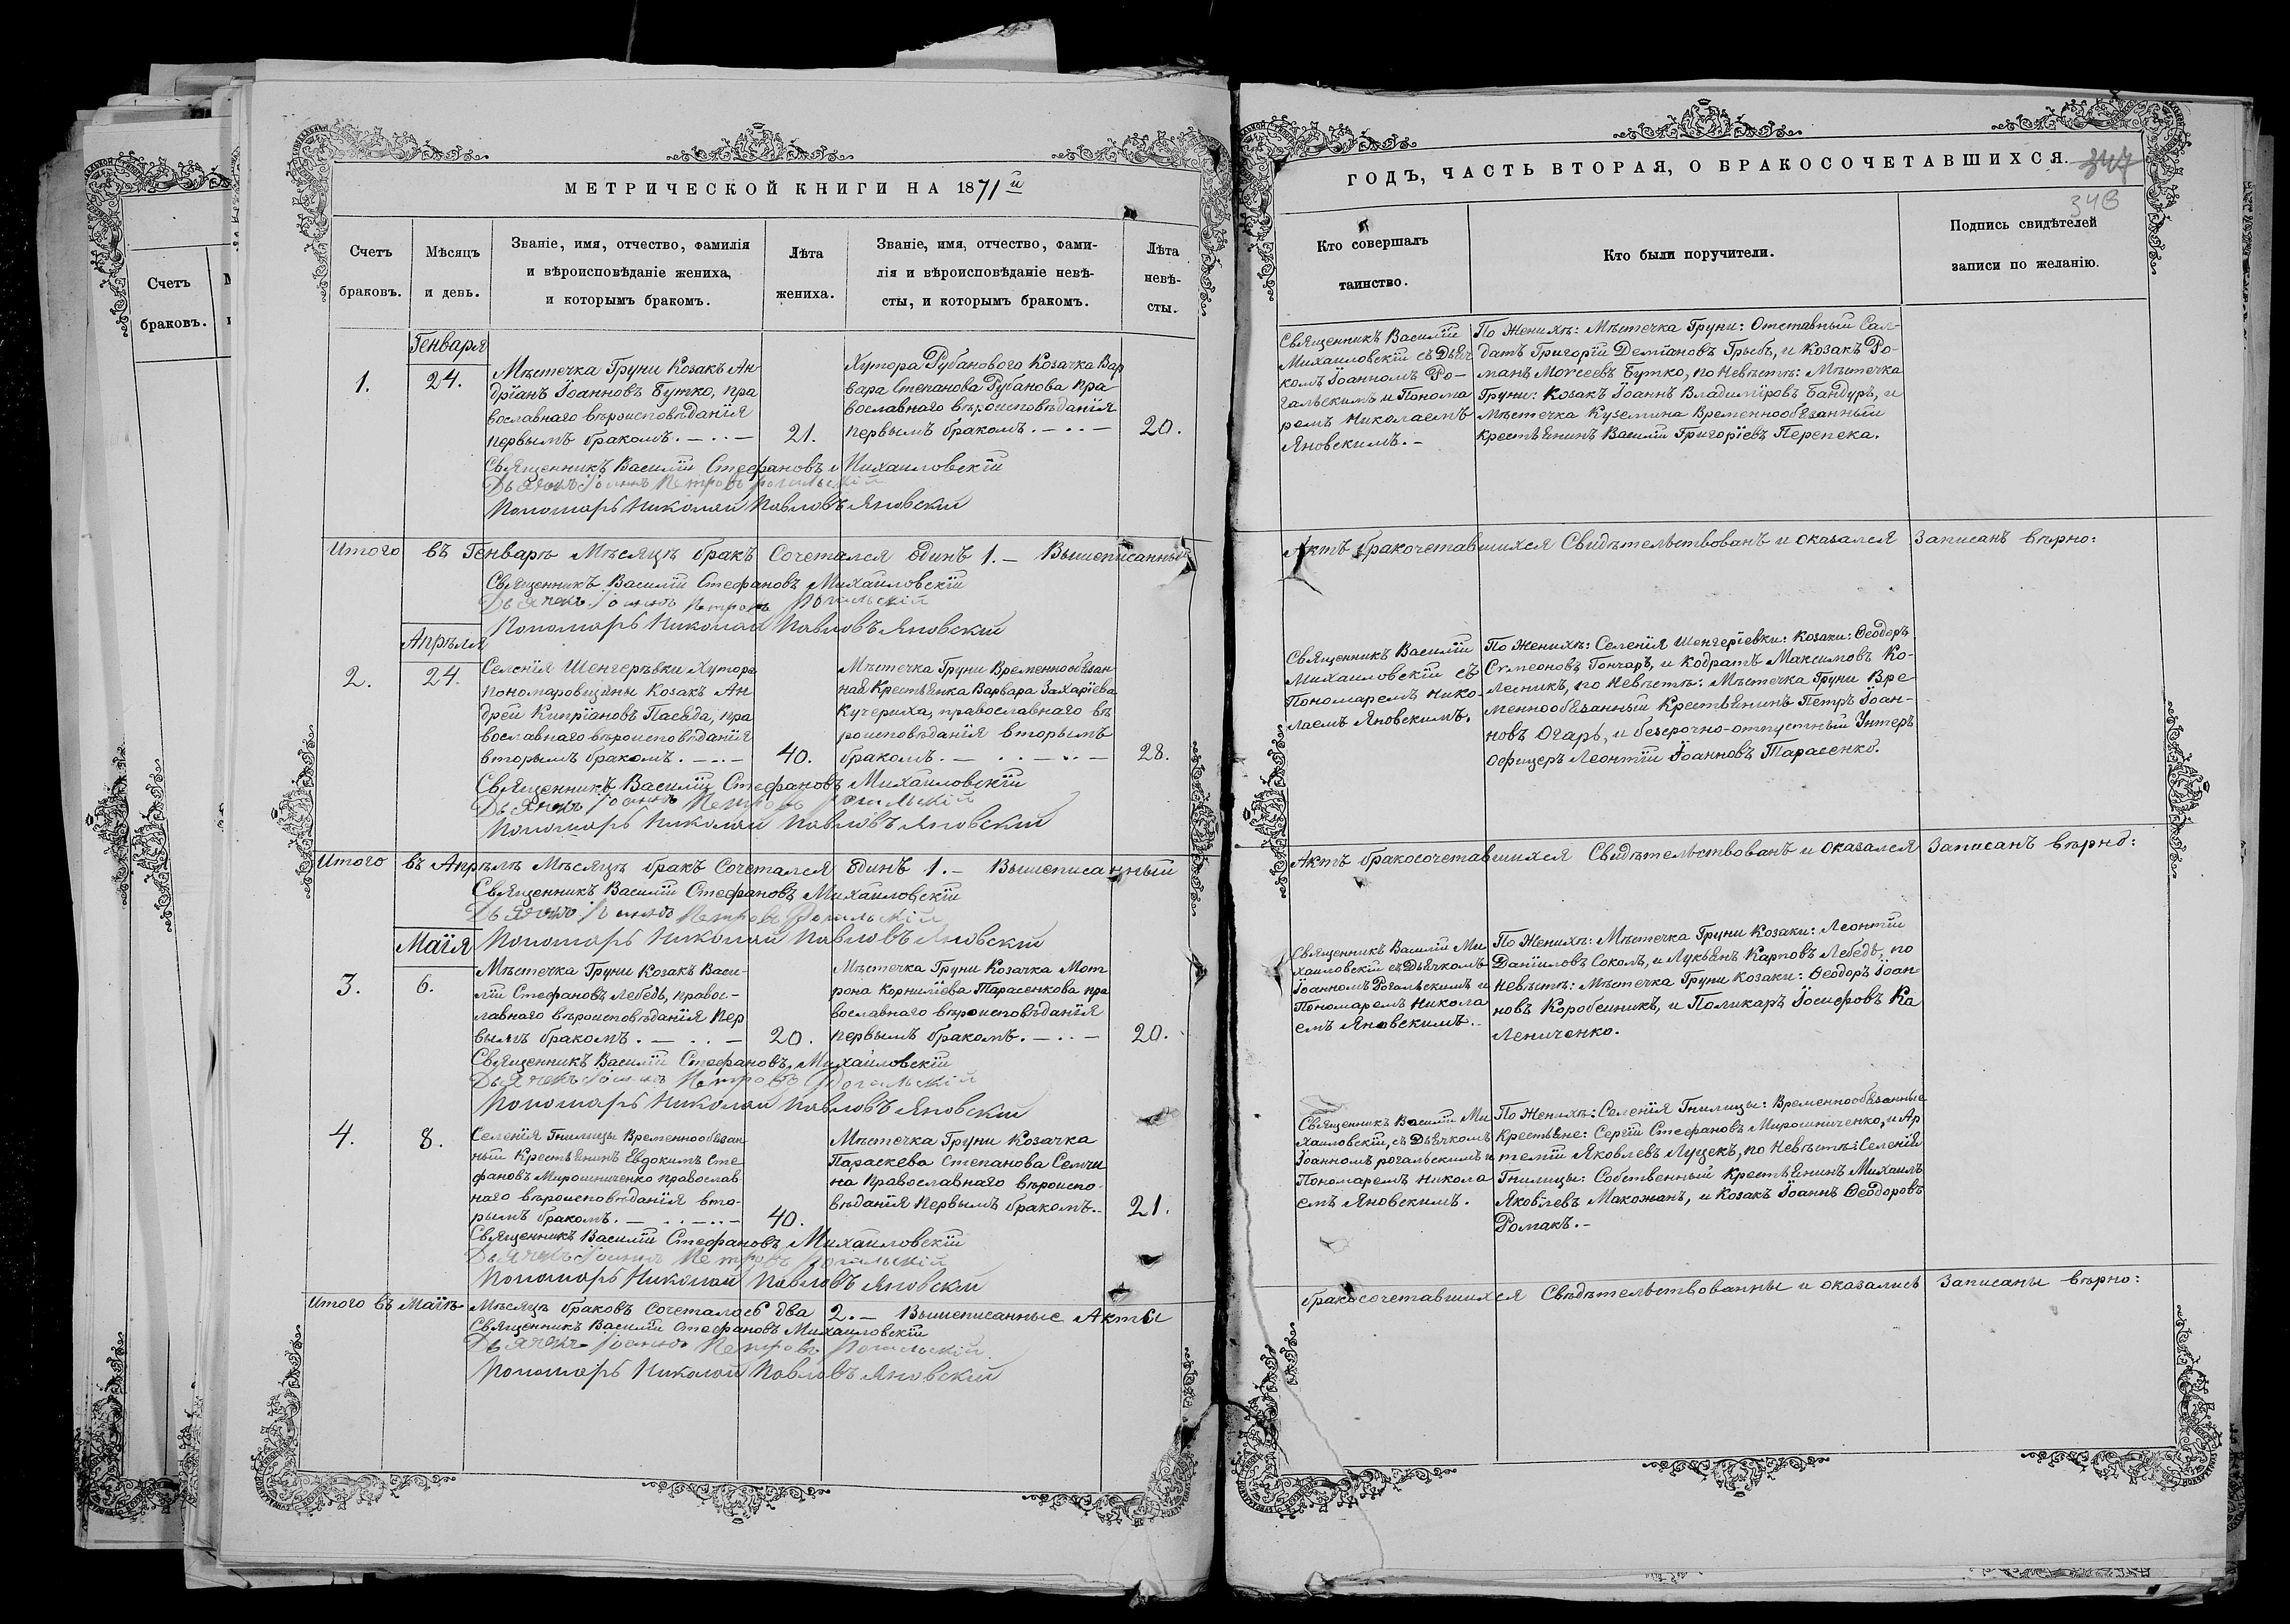 МЕТРИЧЕСКОЙ КНИГИ НА 1871й
Счетъ
браковъ.
Мѣсяцъ
и день.
Званіе, имя, отчество, фамилія
и вѣроисповѣданіе жениха,
и которымъ бракомъ.
Лѣта
жениха.
Званіе, имя, отчество, фами-
лія и вѣроисповѣданіе невѣ-
сты, и которымъ бракомъ.
Лѣта
невѣ-
сты.
Генваря
1.
24.
Мѣстечка Груни Козакъ Ан
дріанъ Іоанновъ Бутко, пра
вославнаго вѣроисповѣданія
первымъ бракомъ.
21.
Хутора Рубанового Козачка Вар
вара Степанова Рубанова пра
вославнаго вѣроисповѣданія
первымъ бракомъ.
20.
Священникъ Василій Стефановъ Михаиловскій
Дьячекъ Іоаннъ Петровъ Рогальскій
Пономарь Николай Павловъ Яновскій
Итого въ Генварѣ Мѣсяцѣ бракъ Сочетался одинъ 1. — Вышеписанный
Священникъ Василій Стефановъ Михаиловскій
Дьячекъ Іоаннъ Петровъ Рогальскій
Пономарь Николай Павловъ Яновскій
Апрѣля
2.
24.
Селенія Шенгерѣвки Хутора
Пономаровщины Козакъ Ан
дрей Кипріановъ Пасѣда, пра
вославнаго вѣроисповѣданія
вторымъ бракомъ.
40.
Мѣстечка Груни Временнообязан
ная Крестьянка Варвара Захаріева
Кучериха, православнаго вѣ
роисповѣданія вторымъ
бракомъ.
28.
Священникъ Василій Стефановъ Михаиловскій
Дьячекъ Іоаннъ Петровъ Рогальскій
Пономарь Николай Павловъ Яновскій
Итого въ Апрѣлѣ Мѣсяцѣ бракъ Сочетался одинъ 1. — Вышеписанный
Священникъ Василій Стефановъ Михаиловскій
Дьячекъ Іоаннъ Петровъ Рогальскій
Пономарь Николай Павловъ Яновскій
Маія
3.
6.
Мѣстечка Груни Козакъ Васи-
лій Стефановъ Лебедь, право-
славнаго вѣроисповѣданія пер
вымъ бракомъ.
20.
Мѣстечка Груни Козачка Мот
рона Корниліева Тарасенкова пра
вославнаго вѣроисповѣданія
первымъ бракомъ.
20.
Священникъ Василій Стефановъ Михаиловскій
Дьячекъ Іоаннъ Петровъ Рогальскій
Пономарь Николай Павловъ Яновскій
4.
8.
Селенія Гнилицы Временнообязан
ный Крестьянинъ Евдокимъ Сте
фановъ Мирошниченко православ
наго вѣроисповѣданія вто-
рымъ бракомъ.
40.
Мѣстечка Груни Козачка
Параскева Степанова Семчи
на Православнаго вѣроиспо-
вѣданія Первымъ бракомъ.
21.
Священникъ Василій Стефановъ Михаиловскій
Дьячекъ Іоаннъ Петровъ Рогальскій
Пономарь Николай Павловъ Яновскій
Итого въ Маіѣ Мѣсяцѣ браковъ Сочеталось два 2. — Вышеписанные Акты
Священникъ Василій Стефановъ Михаиловскій
Дьячекъ Іоаннъ Петровъ Рогальскій
Пономарь Николай Павловъ Яновскій
ГОДЪ, ЧАСТЬ ВТОРАЯ, О БРАКОСОЧЕТАВШИХСЯ.
347
348
Кто совершалъ
таинство.
Кто были поручители.
Подпись свидѣтелей
записи по желанію.
Священникъ Василій
Михаиловскій съ Дьяч
комъ Іоанномъ Ро-
гальскимъ и Понома
ремъ Николаемъ
Яновскимъ.-
По Женихѣ: Мѣстечка Груни: Отставный Сал-
датъ Григорій Деміановъ Грыбъ, и Козакъ Ро-
манъ Моѵсеевъ Бутко, по Невѣстѣ: Мѣстечка
Груни: Козакъ Іоаннъ Владиміровъ Бандуръ, и
Мѣстечка Куземина Временнообязанный
крестьянинъ Василій Григоріевъ Перепека.
Актъ бракочетавшихся Свидѣтельствованъ и оказался Записанъ вѣрно:
Священникъ Василій
Михаиловскій съ
Пономаремъ Нико-
лаемъ Яновскимъ.
По Женихѣ: Селенія Шенгеріевки: Козаки: Ѳеодоръ
Сѵмеоновъ Гончаръ, и Кодратъ Максимовъ Ко-
лесникъ, по Невѣстѣ: Мѣстечка Груни Вре
меннообязанный Крестьянинъ Петръ Іоан-
новъ Огарь, и безсрочно-отпустный Унтеръ
Офицеръ Леонтій Іоанновъ Тарасенко.
Актъ бракосочетавшихся Свидѣтельствованъ и оказался Записанъ вѣрно:
Священникъ Василій Ми
хаиловскій съ Дьячкомъ
Іоанномъ Рогальскимъ и
Пономаремъ Никола
емъ Яновскимъ.
По Женихѣ: Мѣстечка Груни Козаки: Леонтій
Даніиловъ Соколъ, и Лукьянъ Карповъ Лебедь, по
Невѣстѣ: Мѣстечка Груни Козаки: Ѳеодоръ Іоан
новъ Коробейникъ, и Поликарпъ Іосифовъ Ка
лениченко.
Священникъ Василій Ми
хаиловскій, съ Дьячкомъ
Іоанномъ Рогальскимъ и
Пономаремъ Никола
емъ Яновскимъ.
По Женихѣ: Селенія Гнилицы: Временнообязанные
Крестьяне: Сергій Стефановъ Мирошниченко, и Ар
темій Яковлевъ Луцекъ, по Невѣстѣ: Селенія
Гнилицы: Собственный Крестьянинъ Михаилъ
Яковлевъ Макожанъ, и Козакъ Іоаннъ Ѳеодоровъ
Ромакъ.-
бракосочетавшихся Свѣдѣтельствованны и оказались Записаны вѣрно:
Счетъ
браковъ.